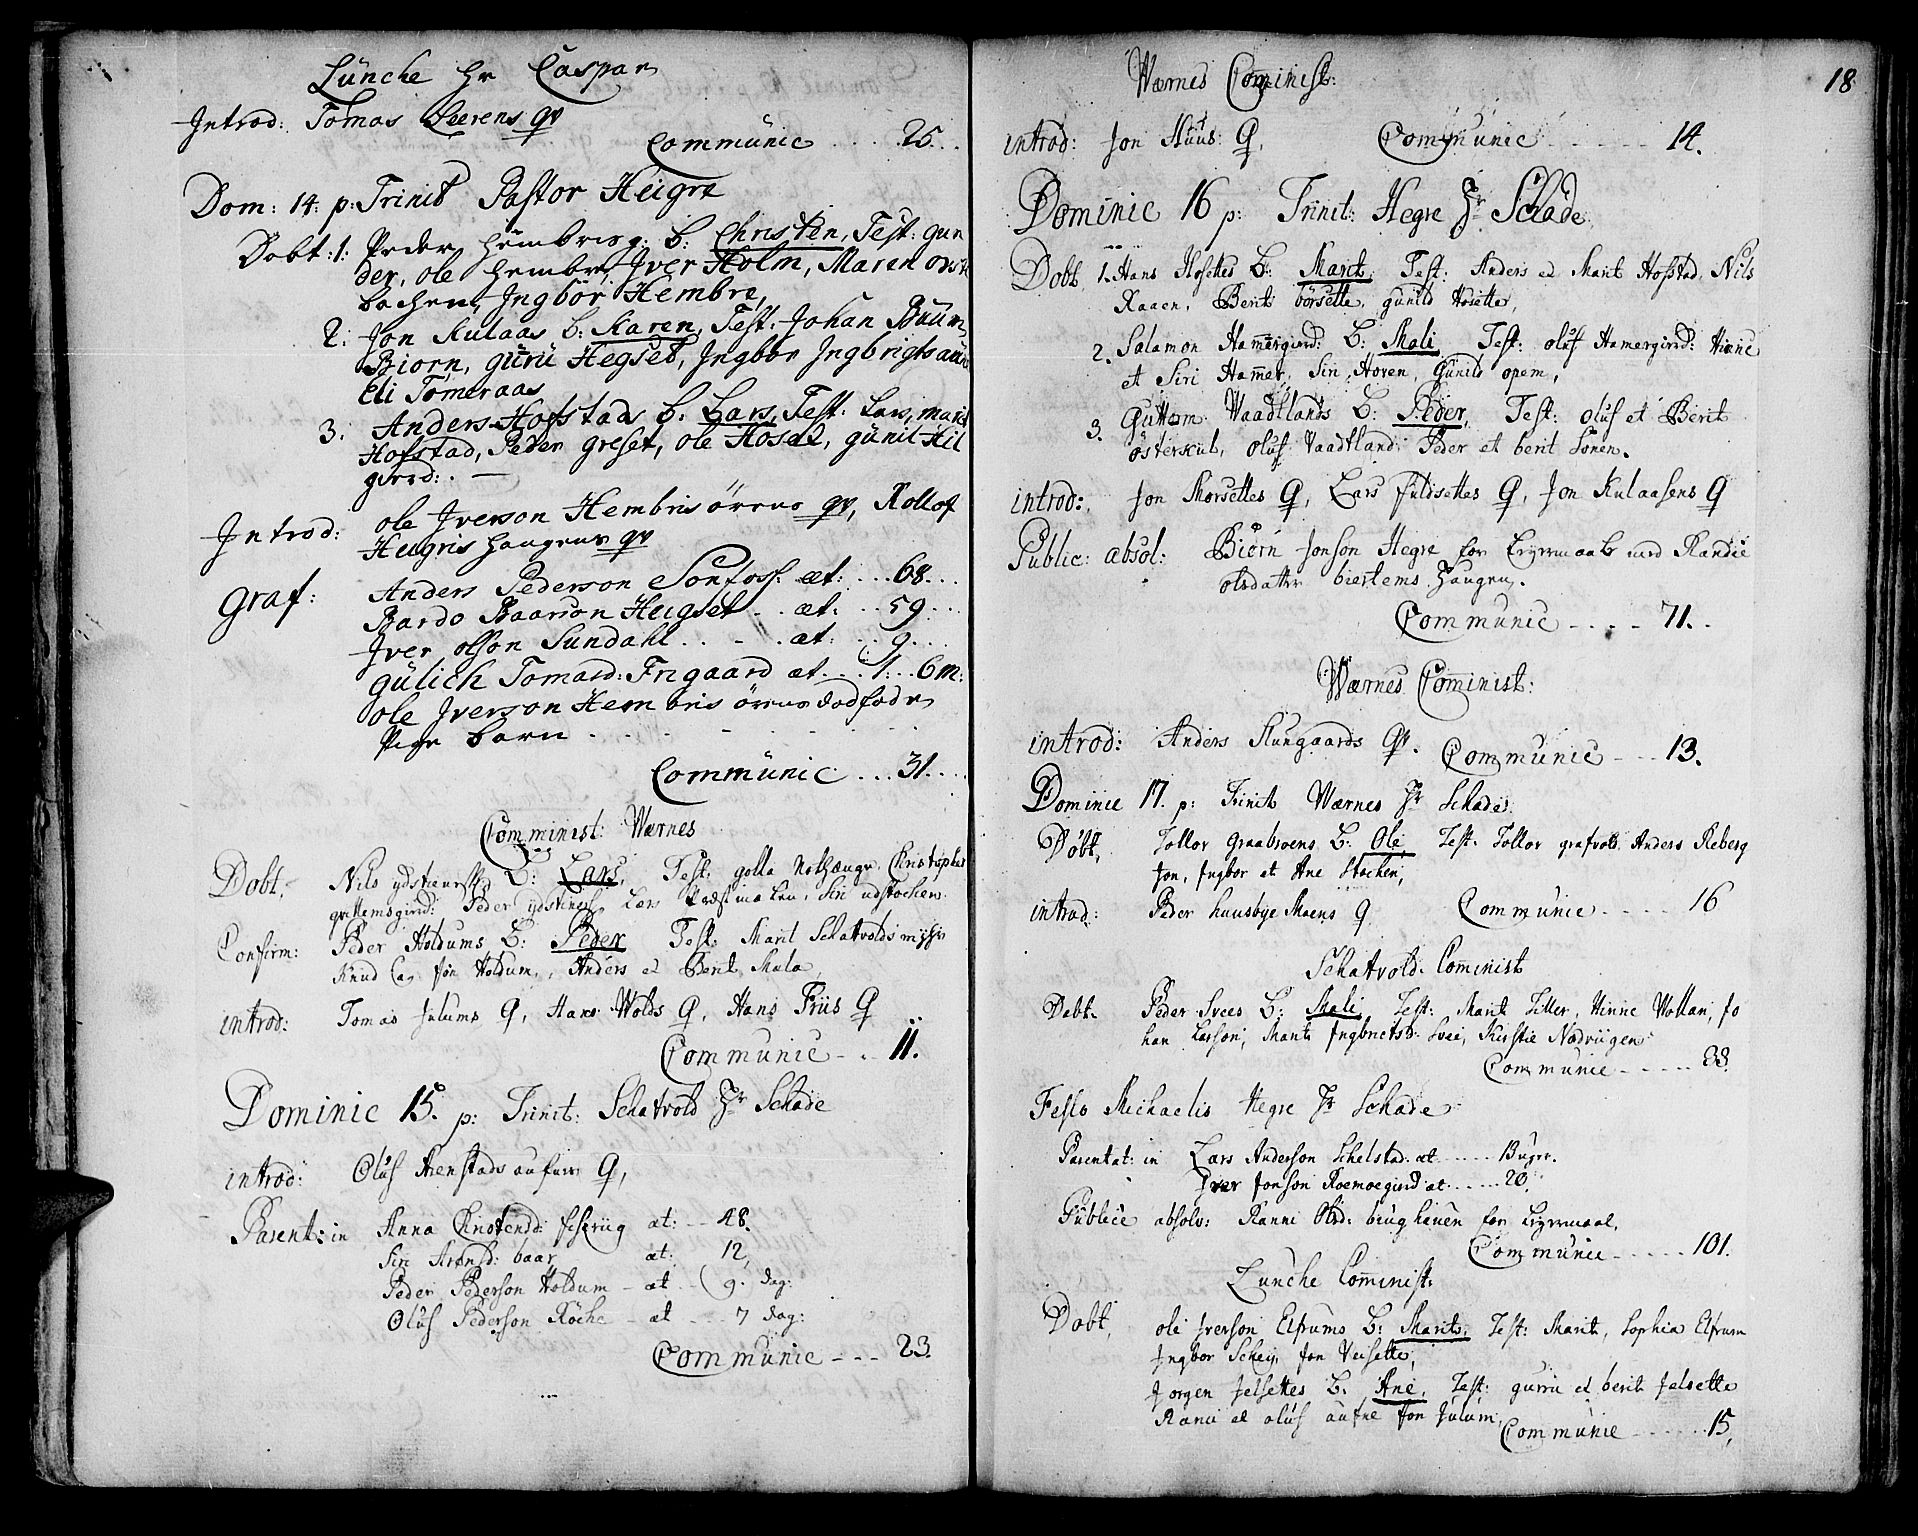 Lünche hr Caspar
Introd: Tomas Leerens qv
Communic . . . . . 25. . .
Dom: 14: p: Trinit Pastor Heigre
Döbt: 1: Peder hembris g: b: Christen, Test: gun
der, ole hembre, Iver Holm, Maren
bachen, Ingbör Hembre,
2: Jon Kulaas b: Karen, Test: Johan Baum
Biorn, gürü Hegset, Ingbor
Eli Tömeraas
3. Anders Hofstads b: Lars, Test: Lars, marit
Hofstad, Peder greset, ole Hoset, günil Hil
gierd: . —
Introd: ole Iverson Hembris örens qv, Rollof
Heigris haugens qv
graf: Anders Pederson Sonfoss: æt: . . . 68. . . .
Bardo Baarson Heigset . . æt: . . 59 . . .
Iver olsson Sundahl . . - . . æt: . . . 9. . . .
gülich Tomasd: Frigaard æt . . . 1: . . 6 m:
ole Iverson Hembris örens dödfödn
Pige barn . . . . . . .
Communic . . . 31. . . .
Comminist: Wærnes
Döbt: Nils ydstienes B: Lars, Test: golla Christopher
Peder Lars Siri udstochen
Confirm: Peder Holdums B: Peder Test: Marit Schatvolds
Knud Jon Holdum, Anders et Berit Mala
introd: Tomas Julums Q, Hans Wolds Q, Hans Friis Q
Communic - . . 11.
Dominic 15. p: Trinit: Schatvold Hr Schade
introd: Olüf Arenstads Q,
Parent: in Anna Christensd: æt: - - 48.
Siri Aronsd: baar æt: 12,
Peder Pederson Holdum - æt - - 9. dag:
Olüf Pederson Röche - æt - - - 7 dag:
Communic - - - 23.
18
Wærnes Cominist:
introd: Jon Hüüs: Q, Communic - - - - - - 14.
Dominic 16 p: Trinit: Hegre Hr Schade
Döbt 1. Hans Hosettes B: Marit. Test: Anders et Marit Hofstad, Nils
Raaen, Berit börsette, günild Hosette,
2. Salamon Hamergierd: B: Mali Test: oluf Hamergierd: Hinric
et Siri Hammer, Siri Hoven, Günild opem,
3. Guttorm Vaadtlands B: Peder, Test: oluf et Berit
österkil, oluf Vaadtland: Peder et berit Lönen.
introd: Jon Morsettes Q, Lars Fuldsettes Q, Jon Kulaasens Q
Public: absol: Biörn Jonson Hegre for Leyermaal med Randie
olsdatter Haugen.
Communic - - - - 71. .
Wærnes Cominist:
introd: Anders Qv. Communic - - - 13.
Dominic 17. p: Trinit Wærnes Hr Schade
Döbt, Tollov Graabroens B: Ole, Test: Tollov Anders Reberg
Jon, Ingbor et Ane Stochen,
introd: Peder huusbye Moens Q Communic - - - - - 16
Schatvold. Cominist
Döbt. Peder Svees B: Mali, Test: Marit Tiller, Hinric Wollan, Jo
han Larson, Marit Svei, Kirstie
Communic - - - - - 23.
Festo Michaelis Hegre Hr Schade
Parentat: in Lars Anderson Schelstad: æt - - - - - 13 uger.
Iver Jonson Roemoegierd æt - - - - 20.
Publice absolv: Ranni Olsd: for Leyermaal.
Communic - - - - - 101.
Lünche Cominist:
Döbt, ole Iverson Elfrums B: Marit, Test: Marit, Sophia Elfrum
Ingbor Jon Veisette,
Jorgen Jelsettes B: Ane, Test: gurru et berit Jelsette
Ranie et oluf aufne Jon Julum,
Communic - - - - - - 15,